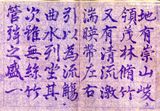 地有崇山峻
領茂林脩竹
又有清流激
湍暎帶左右
引以為流觴
曲水列坐其
次雖無絲竹
管弦之盛一